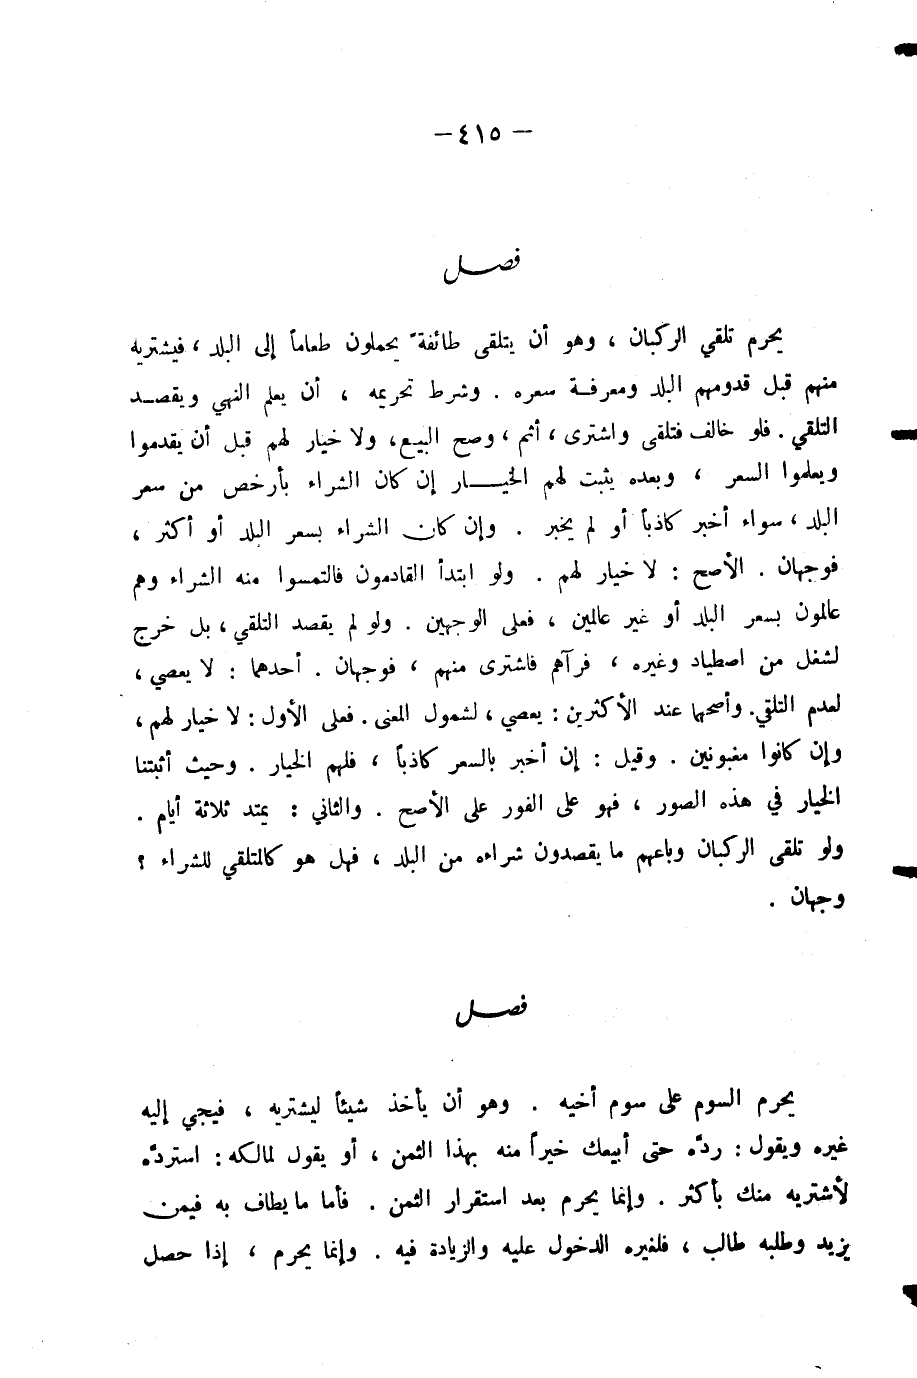 — ٤١٥ —
فصـــل
يحرم تلقي الركبان ، وهو أن يتلقى طائفةً يحملون طعاماً إلى البلد ، فيشتريه
منهم قبل قدومهم البلد ومعرفـة سعره . وشرط تحريمه ، أن يعلم النهي ويقصـد
التلقي . فلو خالف فتلقى واشترى ، أثم ، وصح البيع، ولا خيار لهم قبل أن يقدموا
ويعلموا السعر ، وبعده يثبت لهم الخيـــار إن كان الشراء بأرخص من سعر
البلد ، سواء أخبر كاذباً أو لم يخبر . وإن كان الشراء بسعر البلد أو أكثر ،
فوجهان . الأصح : لا خيار لهم . ولو ابتدأ القادمون فالتمسوا منه الشراء وهم
عالمون بسعر البلد أو غير عالمين ، فعلى الوجهين . ولو لم يقصد التلقي ، بل خرج
لشغل من اصطياد وغيره ، فرآهم فاشترى منهم ، فوجهان . أحدهما : لا يعصي ،
لعدم التلقي. وأصحها عند الأكثرين : يعصي ، لشمول المعنى . فعلى الأول : لا خيار لهم ،
وإن كانوا مغبونين . وقيل : إن أخبر بالسعر كاذباً ، فلهم الخيار . وحيث أثبتنا
الخيار في هذه الصور ، فهو على الفور على الأصح . والثاني : يمتد ثلاثة أيام .
ولو تلقى الركبان وباعهم ما يقصدون شراءه من البلد ، فهل هو كالمتلقي للشراء ؟
وجهان .
فصـــل
يحرم السوم على سوم أخيه . وهو أن يأخذ شيئاً ليشتريه ، فيجي إليه
غيره ويقول : ردَّه حتى أبيعك خيراً منه بهذا الثمن ، أو يقول لمالكه : استردَّه
لأشتريه منك بأكثر . وإنما يحرم بعد استقرار الثمن . فأما ما يطاف به فيمن
يزيد وطلبه طالب ، فلغيره الدخول عليه والزيادة فيه . وإنما يحرم ، إذا حصل